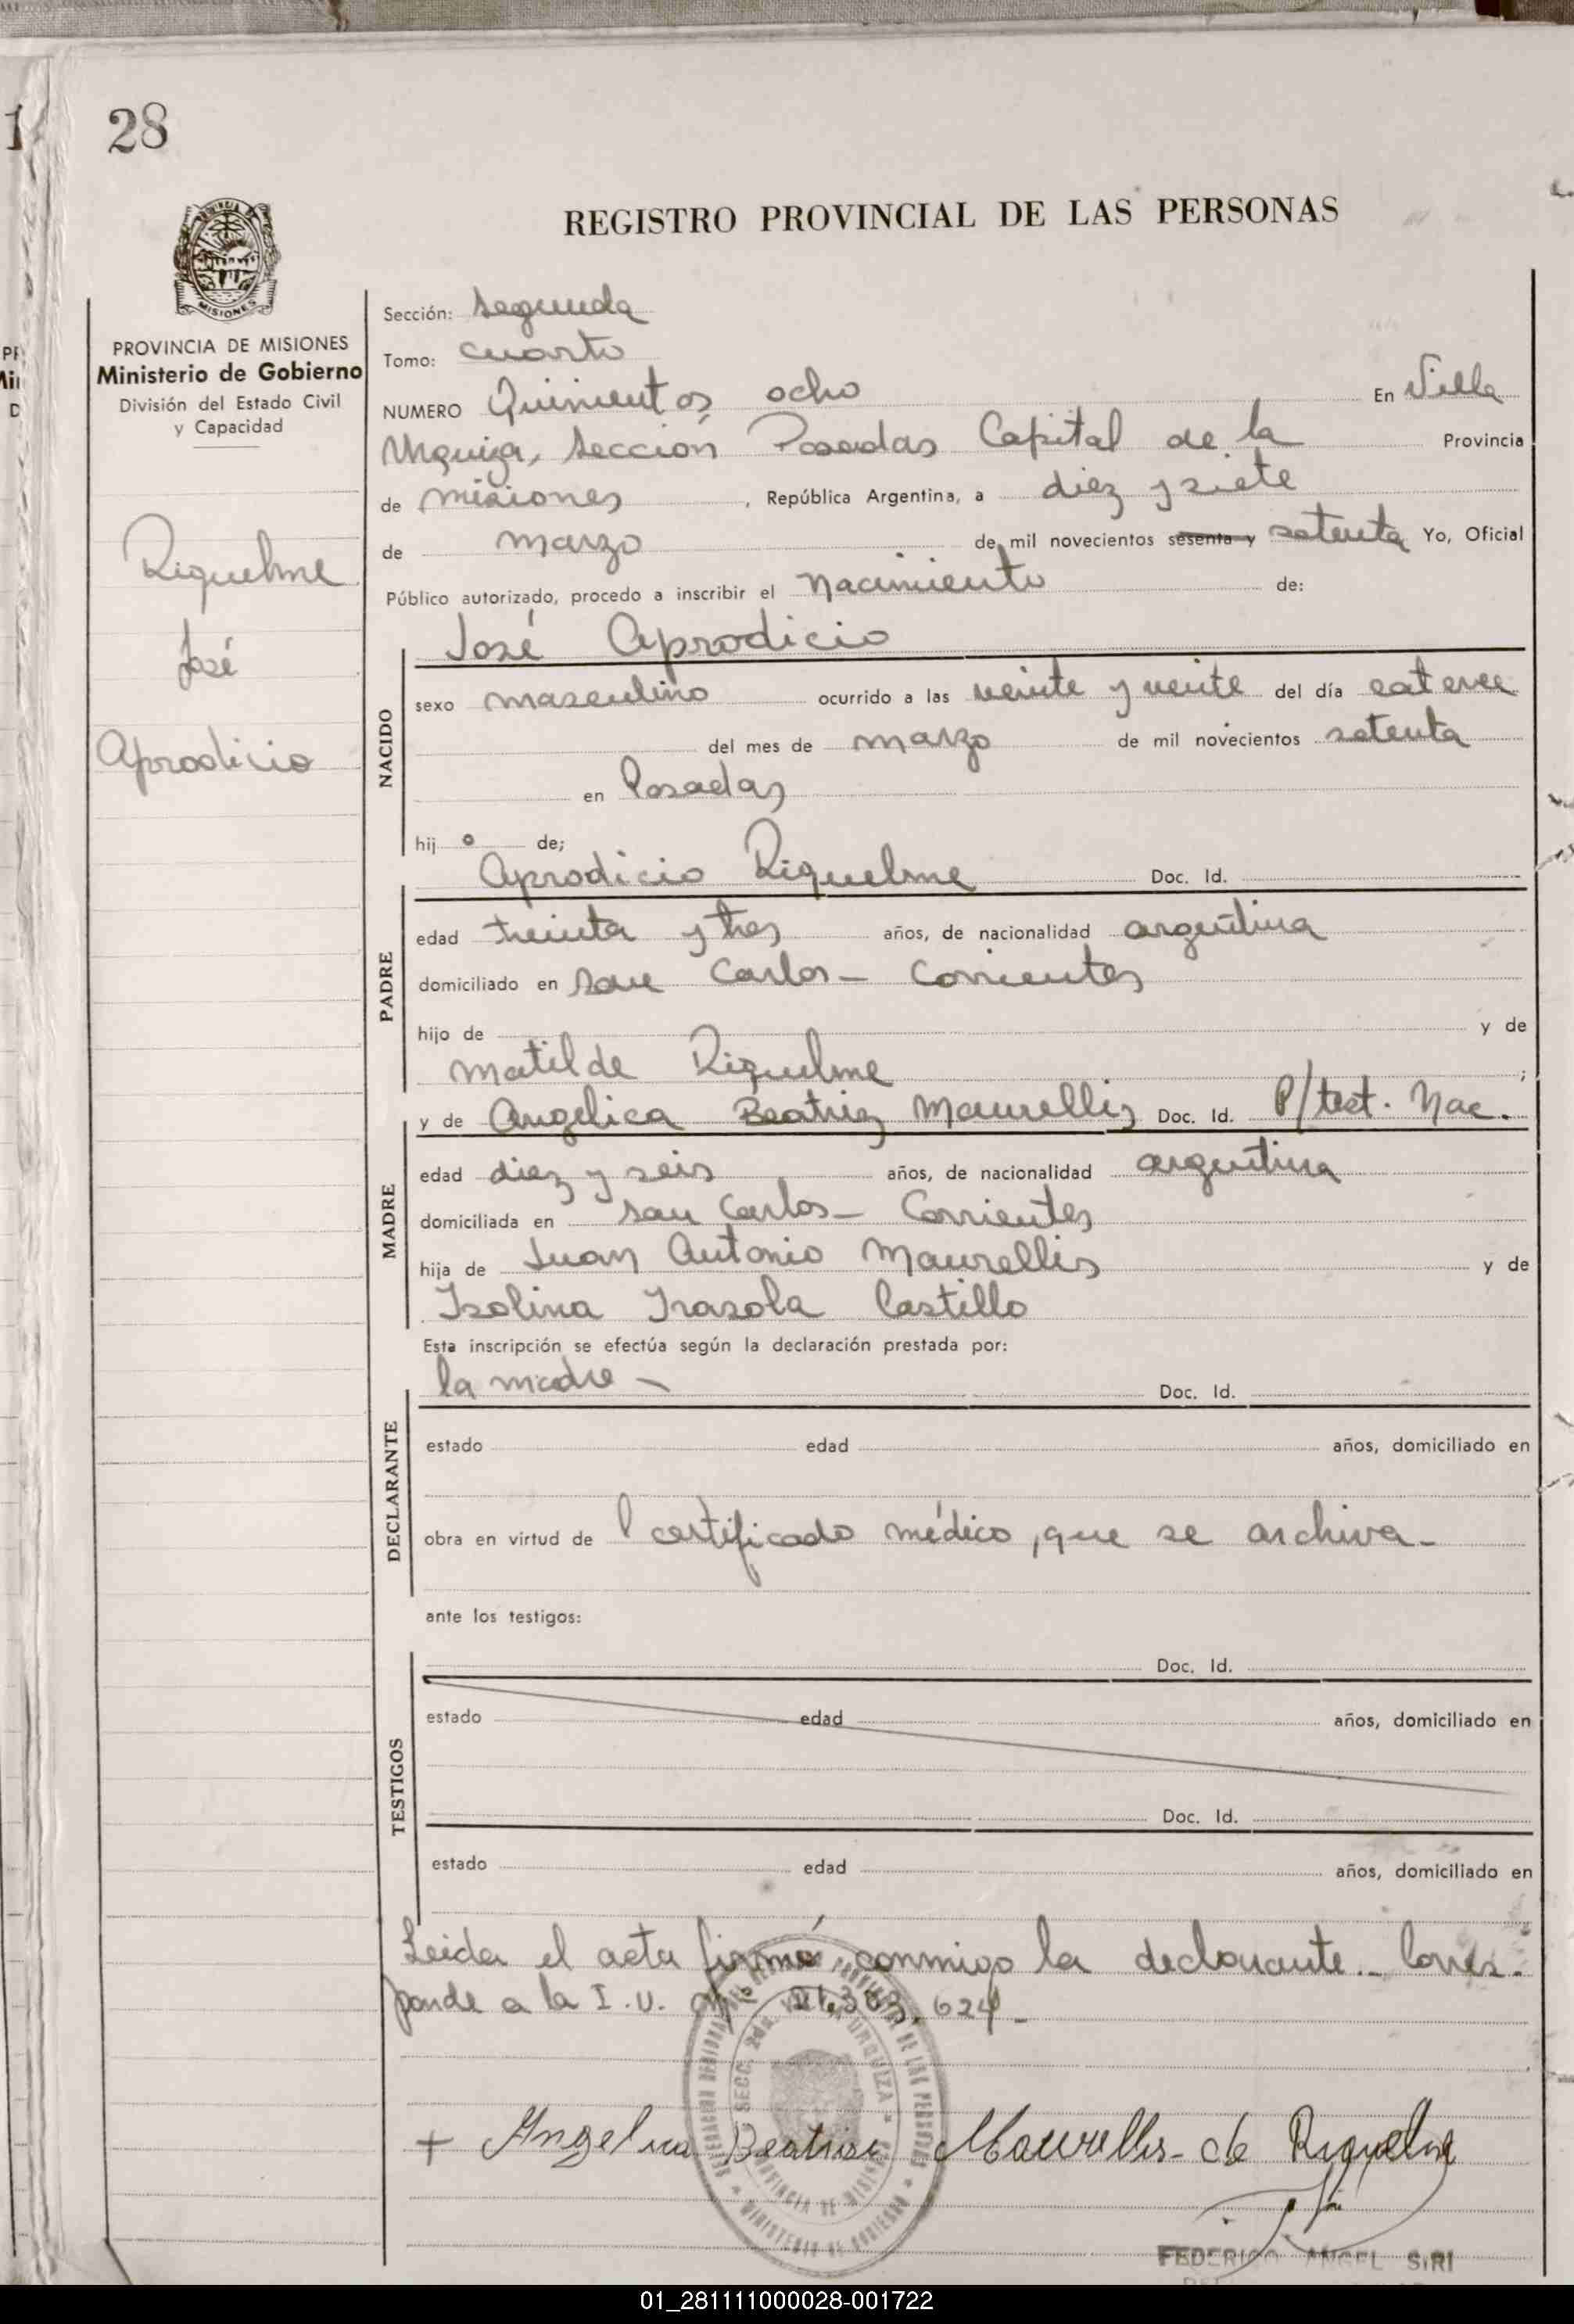 28
REGISTRO PROVINCIAL DE LAS PERSONAS
MISIONES
PROVINCIA DE MISIONES
Ministerio de Gobierno
División del Estado Civil
y Capacidad
Riquelme
José
Aprodicio
Sección: segunda
Tomo: cuarto
NUMERO Quinientos ocho En Villa
Urquiza, sección Posadas Capital de la Provincia
de misiones, República Argentina, a diez y siete
de marzo de mil novecientos sesenta y setenta Yo, Oficial
Público autorizado, procedo a inscribir el nacimiento de:
José Aprodicio
NACIDO
sexo masculino ocurrido a las veinte y veinte del día catorce
del mes de marzo de mil novecientos setenta
en Posadas
hij o de;
Aprodicio Riquelme Doc. Id.
PADRE
edad treinta y tres años, de nacionalidad argentina
domiciliado en San Carlos - Corrientes
hijo de y de
Matilde Riquelme ;
y de Angelica Beatriz Maurellis Doc. Id. P/test. Nac.
MADRE
edad diez y seis años, de nacionalidad argentina
domiciliada en San Carlos - Corrientes
hija de Juan Antonio Maurellis y de
Isolina Irasola Castillo
Esta inscripción se efectúa según la declaración prestada por:
la madre - Doc. Id.
DECLARANTE
estado edad años, domiciliado en
obra en virtud de l certificado médico, que se archiva -
ante los testigos:
Doc. Id.
TESTIGOS
estado edad años, domiciliado en
Doc. Id.
estado edad años, domiciliado en
Leida el acta firmó conmigo la declarante - Corres-
ponde a la I. U. Nº 21.303.624 -
SECC. 2da. VILLA URQUIZA
PROVINCIA DE MISIONES
MINISTERIO DE GOBIERNO
+ Angelica Beatriz Maurellis - de Riquelme
FEDERICO ANGEL SIRI
01_281111000028-001722